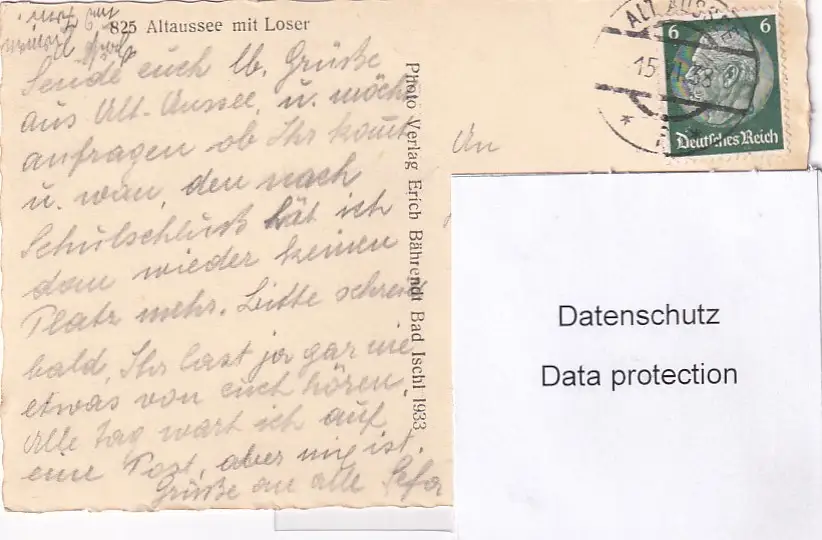 825 Altaussee mit Loser
Sende euch lb. Grüße
aus Alt-Aussee, u. möcht
anfragen ob Ihr komt
u. wan, den nach
Schulschluß hät ich
dan wieder keinen
Platz mehr. Bitte schreibt
bald, Ihr last ja gar nie
etwas von euch hören,
alle Tag wart ich auf
eine Post, aber nix ist.
Grüße an alle Sefa
Photo Verlag Erich Bährendt Bad Ischl 1933
An
ALT AUSSEE
15. 38
6 6
Deutsches Reich
Datenschutz
Data protection